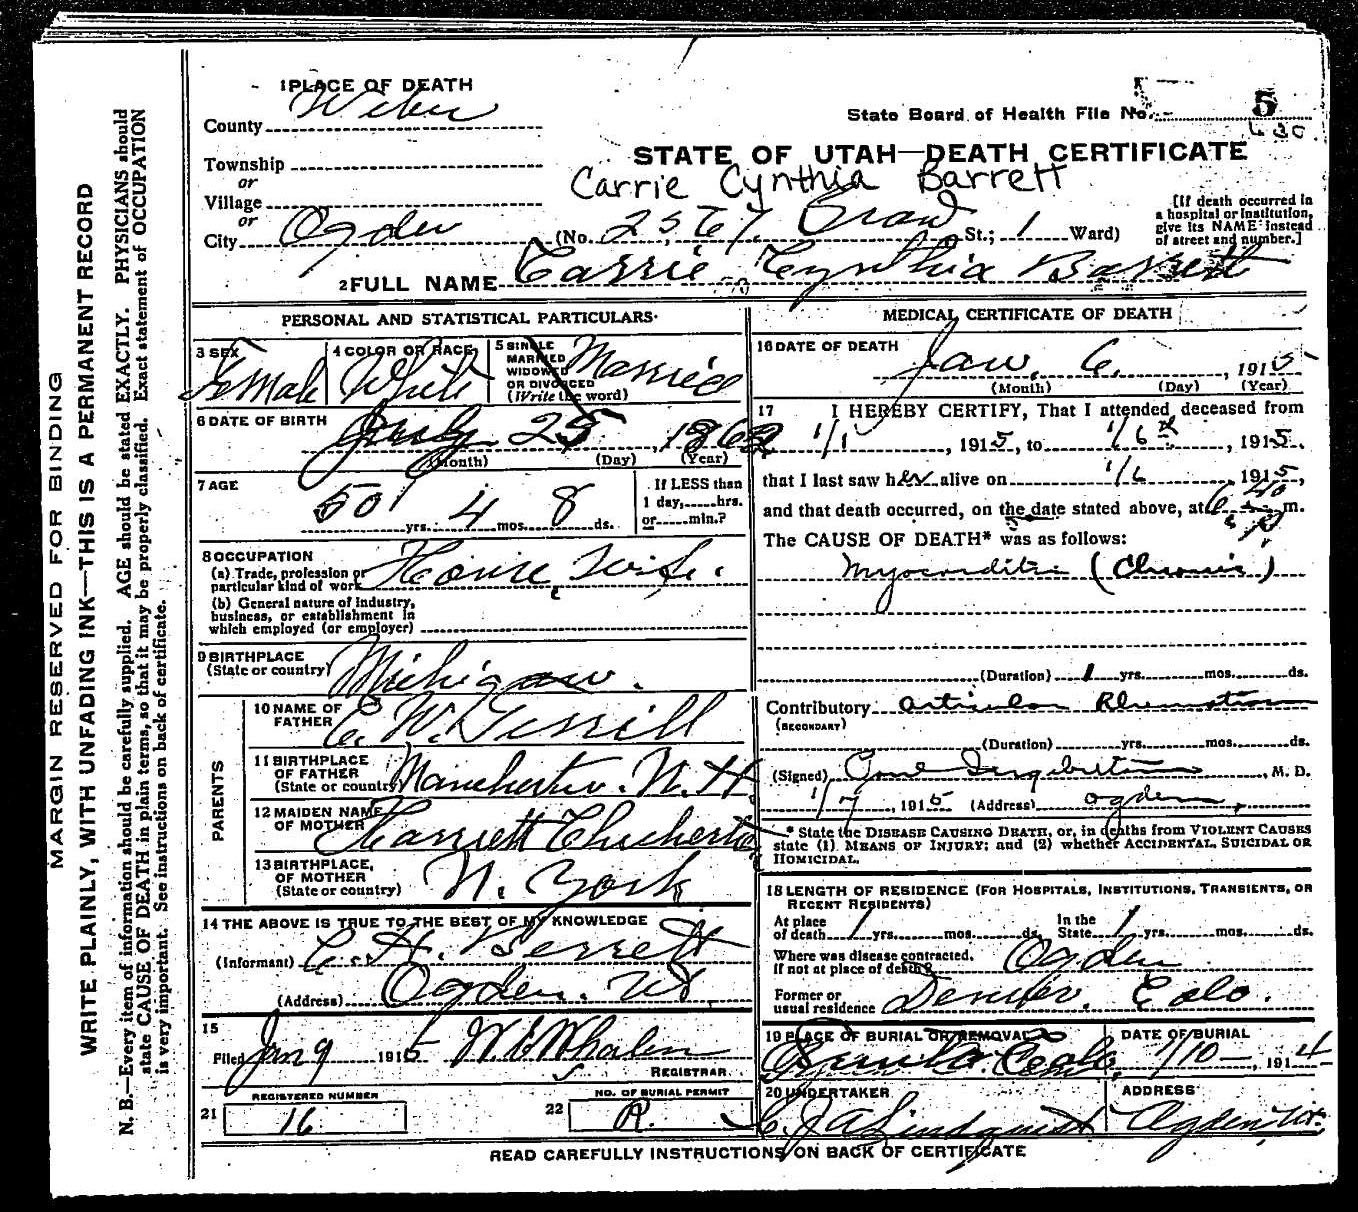 1 PLACE OF DEATH
County Weber
State Board of Health File No. 5
630
STATE OF UTAH—DEATH CERTIFICATE
Carrie Cynthia Barrett
Township
or
Village
or
City Ogden (No. 2567. St.; 1 Ward)
[If death occurred in
a hospital or institution,
give its NAME instead
of street and number.]
2 FULL NAME Carrie Cynthia Barrett
PERSONAL AND STATISTICAL PARTICULARS
3 SEX
Female
4 COLOR OR RACE
White
5 SINGLE
MARRIED
WIDOWED
OR DIVORCED
(Write the word)
Married
6 DATE OF BIRTH
25, 1862
(Month) (Day) (Year)
7 AGE
50 yrs. 4 mos. 8 ds.
If LESS than
1 day,......hrs.
or......min.?
8 OCCUPATION
(a) Trade, profession or
particular kind of work House Wife.
(b) General nature of industry,
business, or establishment in
which employed (or employer)
9 BIRTHPLACE
(State or country) Michigan.
PARENTS
10 NAME OF
FATHER
11 BIRTHPLACE
OF FATHER
(State or country) Manchester. N. H.
12 MAIDEN NAME
OF MOTHER
13 BIRTHPLACE,
OF MOTHER
(State or country) N. York
14 THE ABOVE IS TRUE TO THE BEST OF MY KNOWLEDGE
(Informant) C. H. Berrett
(Address) Ogden. Ut.
15
Filed Jan 9 1915 W. E. Whalen
REGISTRAR
REGISTERED NUMBER
21 16
NO. OF BURIAL PERMIT
22 R.
MEDICAL CERTIFICATE OF DEATH
16 DATE OF DEATH
Jan. 6, 1915
(Month) (Day) (Year)
17 I HEREBY CERTIFY, That I attended deceased from
1/1, 1915, to 1/6, 1915,
that I last saw her alive on 1/6, 1915,
and that death occurred, on the date stated above, at 6 40 P m.
The CAUSE OF DEATH* was as follows:
Myocarditis (Chronic)
(Duration) 1 yrs. mos. ds.
Contributory Articular Rheumatism
(SECONDARY)
(Duration) yrs. mos. ds.
(Signed) , M. D.
1/7, 1915 (Address) Ogden,
* State the DISEASE CAUSING DEATH, or, in deaths from VIOLENT CAUSES
state (1) MEANS OF INJURY; and (2) whether ACCIDENTAL, SUICIDAL OR
HOMICIDAL.
18 LENGTH OF RESIDENCE (FOR HOSPITALS, INSTITUTIONS, TRANSIENTS, OR
RECENT RESIDENTS)
At place
of death 1 yrs. mos. ds.
In the
State 1 yrs. mos. ds.
Where was disease contracted,
if not at place of death? Ogden
Former or
usual residence Denver. Colo.
19 PLACE OF BURIAL OR REMOVAL
Colo.
DATE OF BURIAL
1/10, 1914
20 UNDERTAKER
J A Lindquist
ADDRESS
Ogden, Ut.
READ CAREFULLY INSTRUCTIONS ON BACK OF CERTIFICATE
MARGIN RESERVED FOR BINDING
WRITE PLAINLY, WITH UNFADING INK—THIS IS A PERMANENT RECORD
N. B.—Every item of information should be carefully supplied. AGE should be stated EXACTLY. PHYSICIANS should
state CAUSE OF DEATH in plain terms, so that it may be properly classified. Exact statement of OCCUPATION
is very important. See instructions on back of certificate.